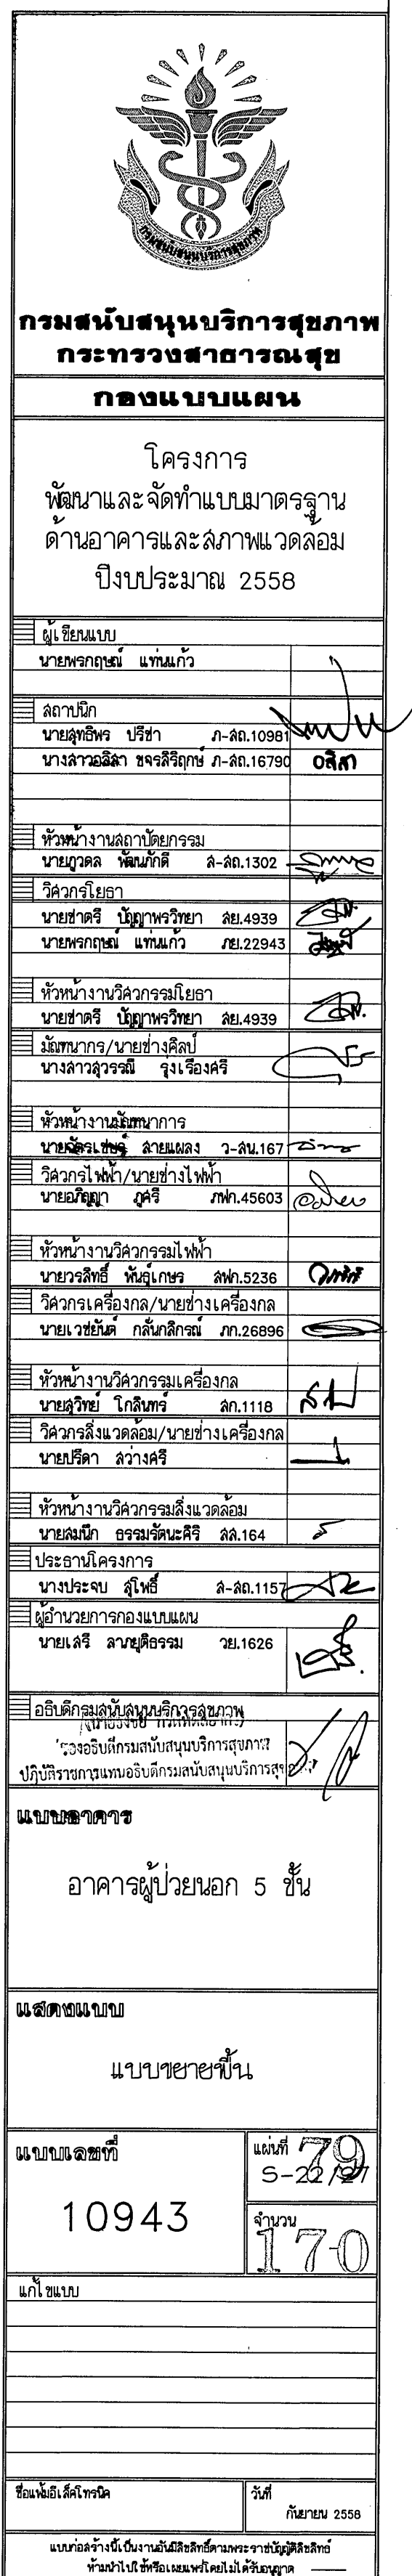 กรมสนับสนุนบริการสุขภาพ
กรมสนับสนุนบริการสุขภาพ
กระทรวงสาธารณสุข
กองแบบแผน
โครงการ
พัฒนาและจัดทำแบบมาตรฐาน
ด้านอาคารและสภาพแวดล้อม
ปีงบประมาณ 2558
ผู้เขียนแบบ
นายพรกฤษณ์ แท่นแก้ว
สถาปนิก
นายสุทธิพร ปรีชา ภ-สถ.10981
นางสาวอลิสา ขจรสิริฤกษ์ ภ-สถ.16790 อลิสา
หัวหน้างานสถาปัตยกรรม
นายภูวดล พัฒนภักดี ส-สถ.1302
วิศวกรโยธา
นายชาตรี ปัญญาพรวิทยา สย.4939
นายพรกฤษณ์ แท่นแก้ว ภย.22943
หัวหน้างานวิศวกรรมโยธา
นายชาตรี ปัญญาพรวิทยา สย.4939
มัณฑนากร/นายช่างศิลป์
นางสาวสุวรรณี รุ่งเรืองศรี
หัวหน้างานมัณฑนาการ
สายแผลง ว-สน.167
วิศวกรไฟฟ้า/นายช่างไฟฟ้า
นายอภิญญา ภูศรี ภฟก.45603
หัวหน้างานวิศวกรรมไฟฟ้า
นายวรสิทธิ์ พันธุ์เกษร สฟก.5236
วิศวกรเครื่องกล/นายช่างเครื่องกล
นายเวชยันต์ กลั่นกสิกรณ์ ภก.26896
หัวหน้างานวิศวกรรมเครื่องกล
นายสุวิทย์ โกสินทร์ สก.1118
วิศวกรสิ่งแวดล้อม/นายช่างเครื่องกล
นายปรีดา สว่างศรี
หัวหน้างานวิศวกรรมสิ่งแวดล้อม
นายสมนึก ธรรมรัตนะศิริ สส.164
ประธานโครงการ
นางประจบ สุโพธิ์ ส-สถ.1157
ผู้อำนวยการกองแบบแผน
นายเสรี ลาภยุติธรรม วย.1626
อธิบดีกรมสนับสนุนบริการสุขภาพ
รองอธิบดีกรมสนับสนุนบริการสุขภาพ
ปฏิบัติราชการแทนอธิบดีกรมสนับสนุนบริการสุขภาพ
แบบอาคาร
อาคารผู้ป่วยนอก 5 ชั้น
แสดงแบบ
แบบขยายพื้น
แบบเลขที่
10943
แผ่นที่ 79
S-22/27
จำนวน
170
แก้ไขแบบ
ชื่อแฟ้มอิเล็คโทรนิค
วันที่
กันยายน 2558
แบบก่อสร้างนี้เป็นงานอันมีลิขสิทธิ์ตามพระราชบัญญัติลิขสิทธิ์
ห้ามนำไปใช้หรือเผยแพร่โดยไม่ได้รับอนุญาต